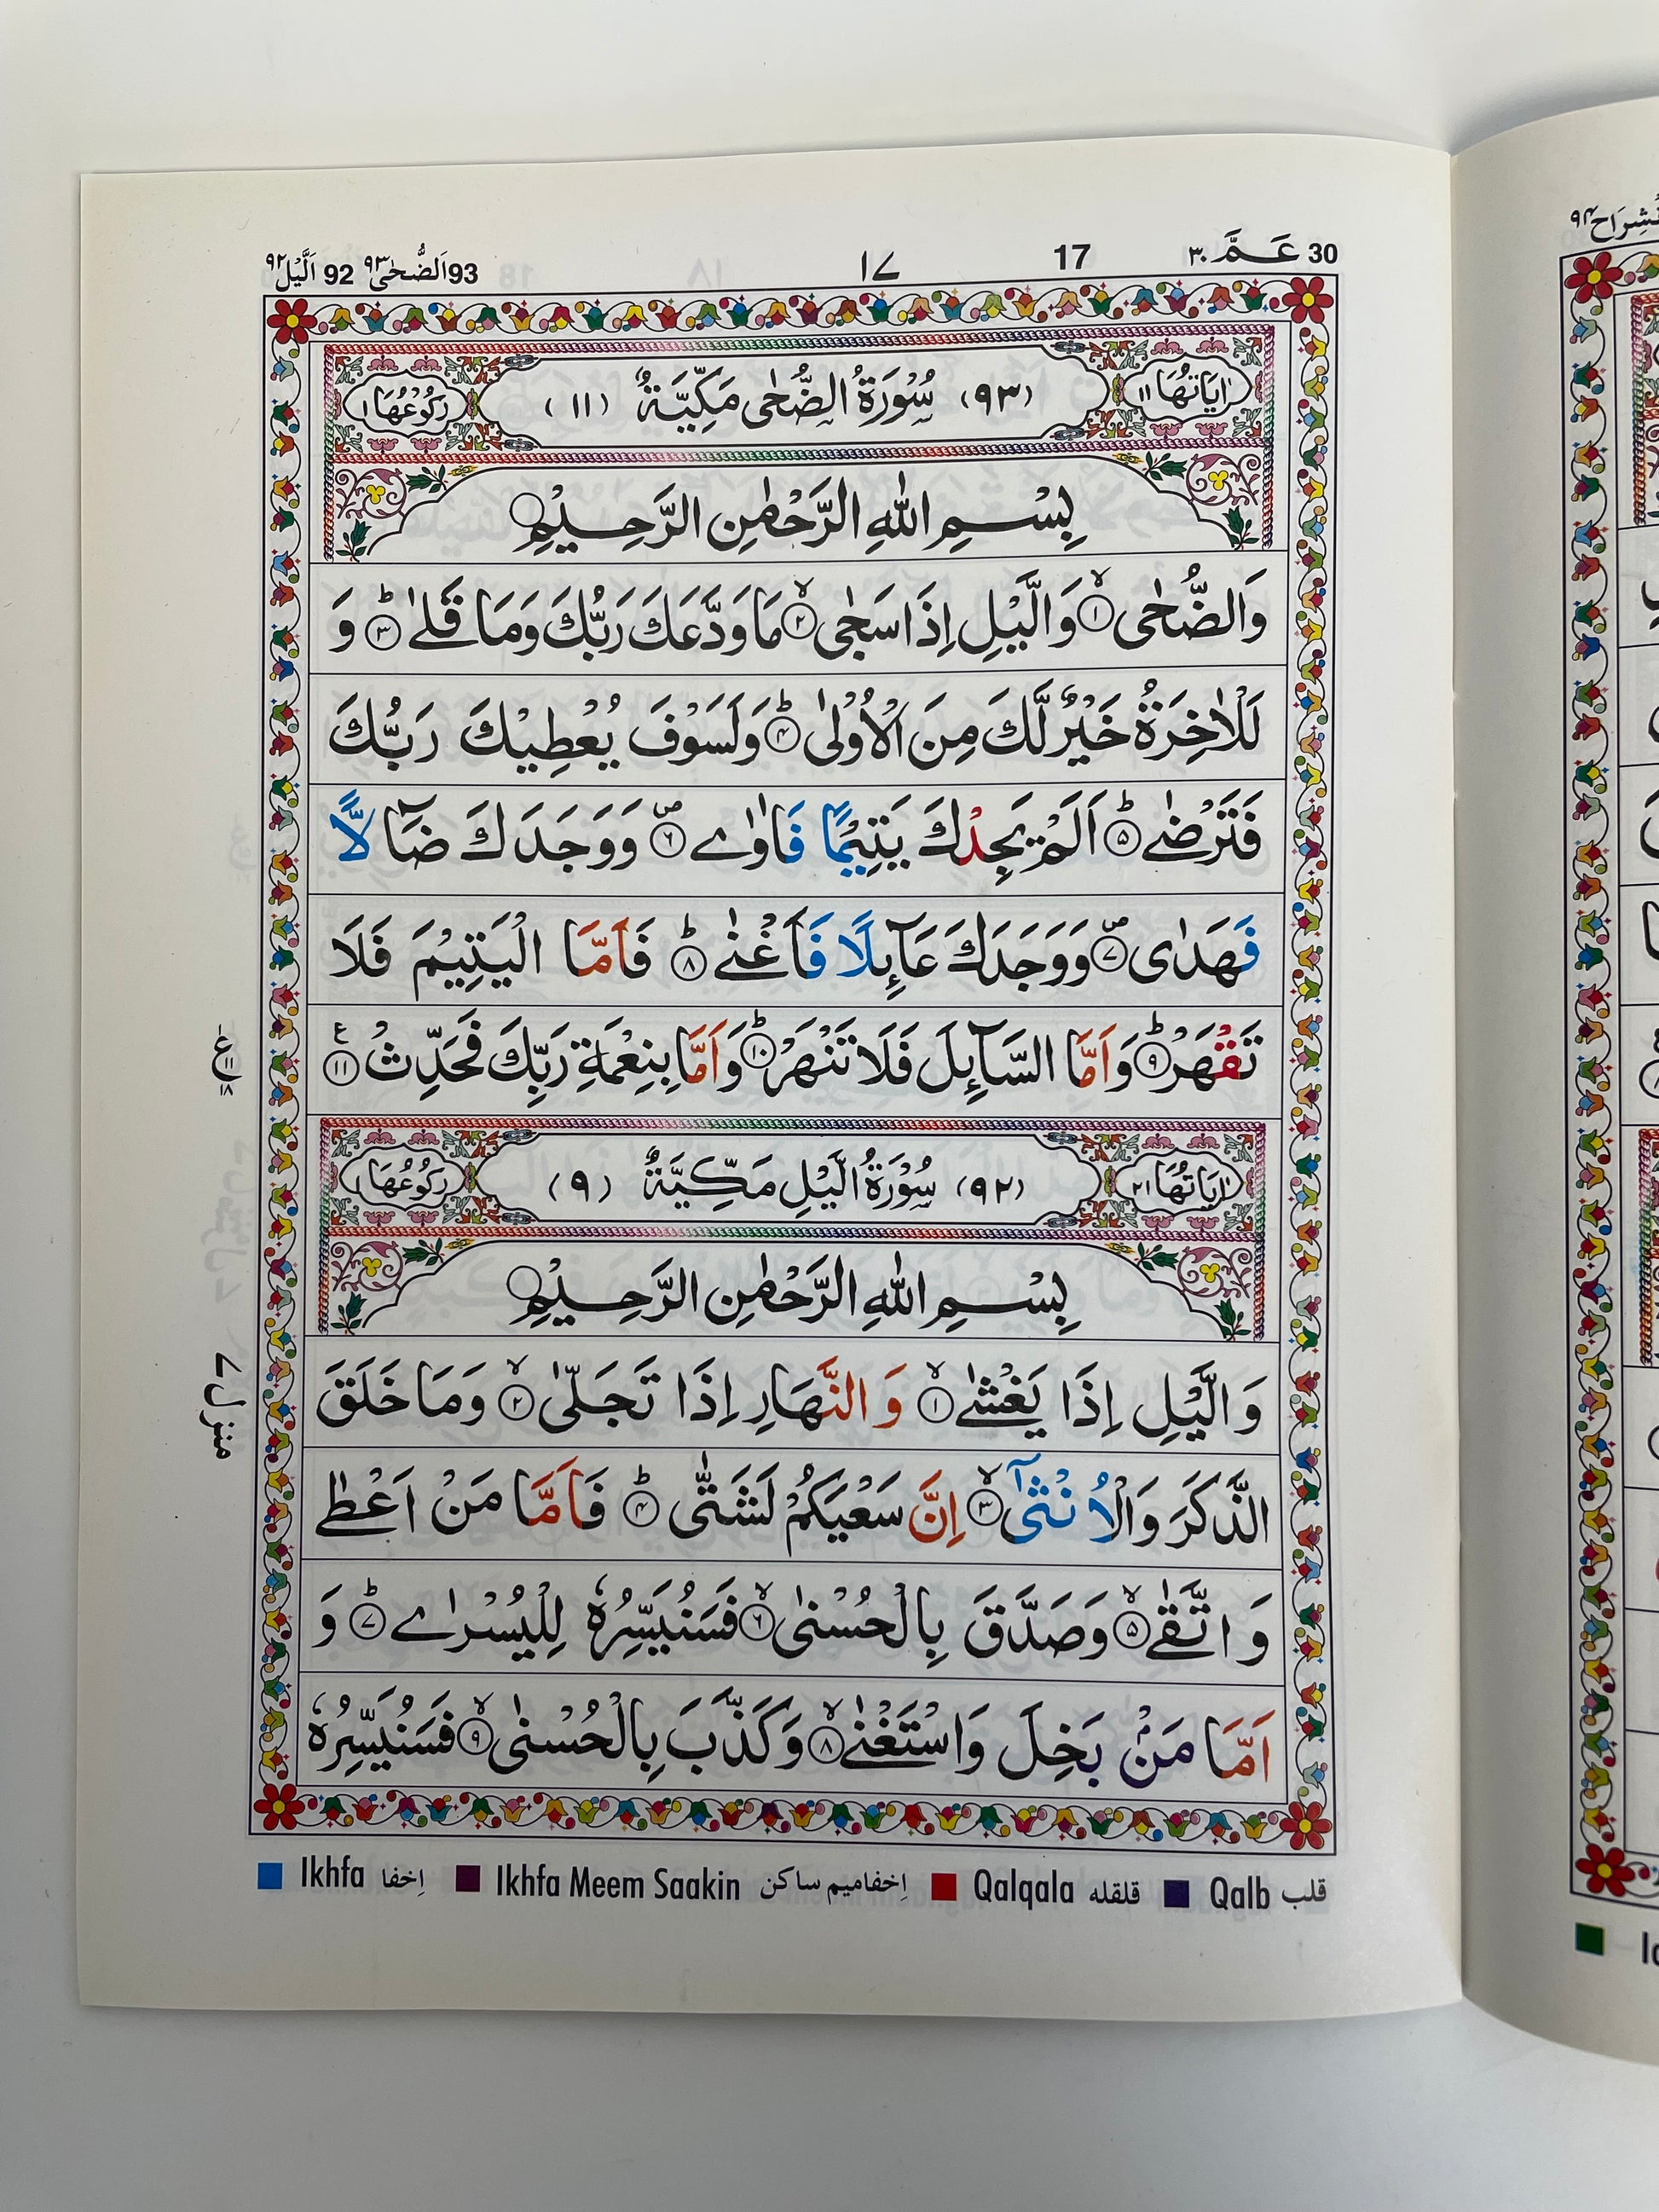 30 عَـمَّ ٣٠ 17 ١٧ 93 اَلضُّحٰى ٩٣ 92 اَلَّيْل ٩٢
اٰيَاتُهَا ١١ (٩٣) سُوْرَةُ الضُّحٰى مَكِّيَّةٌ (١١) رُكُوْعُهَا ١
بِسْمِ اللّٰهِ الرَّحْمٰنِ الرَّحِيْمِ
وَالضُّحٰى ۙ﴿١﴾ وَالَّيْلِ اِذَا سَجٰى ۙ﴿٢﴾ مَا وَدَّعَكَ رَبُّكَ وَمَا قَلٰى ؕ﴿٣﴾ وَ
لَلْاٰخِرَةُ خَيْرٌ لَّكَ مِنَ الْاُوْلٰى ؕ﴿٤﴾ وَلَسَوْفَ يُعْطِيْكَ رَبُّكَ
فَتَرْضٰى ؕ﴿٥﴾ اَلَمْ يَجِدْكَ يَتِيْمًا فَاٰوٰى ۪﴿٦﴾ وَوَجَدَكَ ضَآلًّا
فَهَدٰى ۪﴿٧﴾ وَوَجَدَكَ عَآئِلًا فَاَغْنٰى ؕ﴿٨﴾ فَاَمَّا الْيَتِيْمَ فَلَا
تَقْهَرْ ؕ﴿٩﴾ وَاَمَّا السَّآئِلَ فَلَا تَنْهَرْ ؕ﴿١٠﴾ وَاَمَّا بِنِعْمَةِ رَبِّكَ فَحَدِّثْ ﴿١١﴾ ع
ع ١ ١١ ١٨
اٰيَاتُهَا ٢١ (٩٢) سُوْرَةُ الَّيْلِ مَكِّيَّةٌ (٩) رُكُوْعُهَا ١
بِسْمِ اللّٰهِ الرَّحْمٰنِ الرَّحِيْمِ
وَالَّيْلِ اِذَا يَغْشٰى ۙ﴿١﴾ وَالنَّهَارِ اِذَا تَجَلّٰى ۙ﴿٢﴾ وَمَا خَلَقَ
منزل ٧
الذَّكَرَ وَالْاُنْثٰٓى ۙ﴿٣﴾ اِنَّ سَعْيَكُمْ لَشَتّٰى ؕ﴿٤﴾ فَاَمَّا مَنْ اَعْطٰى
وَاتَّقٰى ۙ﴿٥﴾ وَصَدَّقَ بِالْحُسْنٰى ۙ﴿٦﴾ فَسَنُيَسِّرُهٗ لِلْيُسْرٰى ؕ﴿٧﴾ وَ
اَمَّا مَنْۢ بَخِلَ وَاسْتَغْنٰى ۙ﴿٨﴾ وَكَذَّبَ بِالْحُسْنٰى ۙ﴿٩﴾ فَسَنُيَسِّرُهٗ
Ikhfa اِخفا Ikhfa Meem Saakin اِخفامیم ساکن Qalqala قلقلہ Qalb قلب